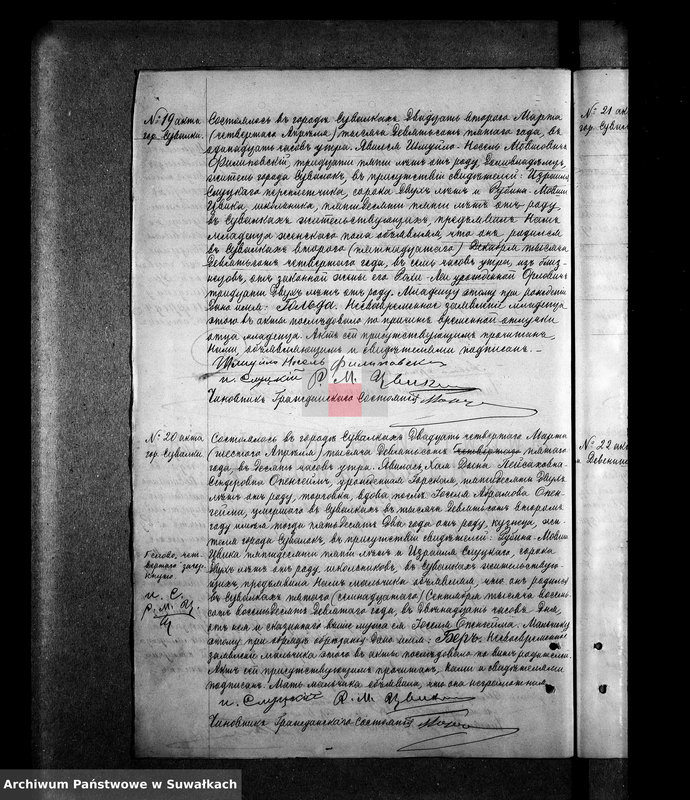 № 19 акта
гор. Сувалки.
Состоялось въ городѣ Сувалкахъ Двадцать второго Марта
(четвертаго Апрѣля) тысяча девятьсотъ пятаго года, въ
одинадцать часовъ утра. Явился Шмуйло-Носель Мовшовичъ
Филиповскій, тридцати пяти лѣтъ отъ роду,
житель города Сувалокъ, въ присутствіи свидѣтелей: Израиля
Слуцкаго переплетчика, сорока двухъ лѣтъ и Рубина-Мовши
Цвика, школьника, пятидесяти пяти лѣтъ отъ роду,
въ Сувалкахъ жительствующихъ, предъявилъ Намъ
младенца женскаго пола объявляя, что онъ родился
въ Сувалкахъ второго (пятнадцатаго) Декабря тысяча
девятьсотъ четвертаго года, въ семь часовъ утра, изъ близ-
нецовъ, отъ законной жены его Хаи-Леи урожденной Орловичъ
тридцати двухъ лѣтъ отъ роду. Младенцу этому при рожденіи
дано имя: Гольда. Несвоевременное заявленіе младенца
этого въ акты послѣдовало по причинѣ временной отлучки
отца младенца. Актъ сей присутствующимъ прочитанъ,
Нами, объявляющимъ и свидѣтелями подписанъ. –
Шмуйло Носель Филиповски
и. Слуцкій Р. М. Цвикъ
Чиновникъ Гражданскаго Состоянія
№ 20 акта
гор. Сувалки.
Состоялось въ городѣ Сувалкахъ Двадцать четвертаго Марта
(шестого Апрѣля) тысяча девятьсотъ четвертаго пятаго
года, въ десять часовъ утра. Явилась Хая Двейра Лейзаковна-
Сендеровна Опенгеймъ, урожденная Горская, пятидесяти двухъ
лѣтъ отъ роду, торговка, вдова послѣ Госеля Абрамова Опен-
гейма, умершаго въ Сувалкахъ въ тысяча девятьсотъ второмъ
году имѣя тогда пятьдесятъ два года отъ роду, кузнеца, жи-
теля города Сувалокъ, въ присутствіи свидѣтелей: Рубина-Мовши
Цвика пятидесяти пяти лѣтъ и Израиля Слуцкаго, сорока
двухъ лѣтъ отъ роду, школьниковъ, въ Сувалкахъ жительствую-
щихъ, предъявила Намъ мальчика объявляя, что онъ родился
въ Сувалкахъ пятаго (семнадцатаго) Сентября тысяча восемь-
сотъ восемьдесятъ девятаго года, въ двѣнадцать часовъ дня,
отъ нея и сказаннаго выше мужа ея Госеля Опенгейма. Мальчику
этому при обрядѣ обрѣзанія дано имя: Беръ. Несвоевременное
заявленіе мальчика этого въ акты послѣдовало по винѣ родителей.
Актъ сей присутствующимъ прочитанъ, Нами и свидѣтелями
подписанъ. Мать мальчика объявила, что она неграмотная.
и. Слуцкій Р. М. Цвикъ
Чиновникъ Гражданскаго Состоянія
Слово, чет-
вертаго зачер-
кнуто
и. С.
Р. М. Ц.
№ 21 ак
гор. Сувал
№ 22 ак
Archiwum Państwowe w Suwałkach